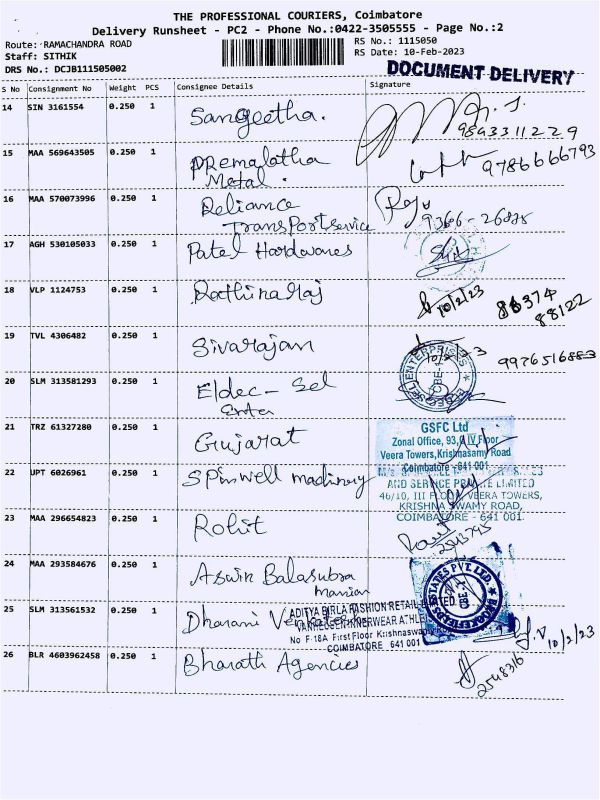 THE PROFESSIONAL COURIERS, Coimbatore
Delivery Runsheet - PC2 - Phone No.:0422-3505555 - Page No.:2
Route: RAMACHANDRA ROAD
RS No.: 1115050
Staff: SITHIK
RS Date: 10-Feb-2023
DRS No.: DCJB111505002
DOCUMENT DELIVERY
S No Consignment No Weight PCS Consignee Details Signature
14 SIN 3161554 0.250 1 Sangeetha.
9843311229
15 MAA 569643505 0.250 1 Premalatha
Metal.
9786666793
16 MAA 570073996 0.250 1 Reliance
Transport service
17 AGH 530105033 0.250 1 Patel Hardwares
18 VLP 1124753 0.250 1 Rathinaraj
10/2/23 88374
88122
19 TVL 4306482 0.250 1 Sivarajan
9976516883
20 SLM 313581293 0.250 1 Eldec - Sel
Enter
21 TRZ 61327280 0.250 1 Gujarat
GSFC Ltd
Zonal Office, 93, IV Floor
Veera Towers, Krishnasamy Road
Coimbatore - 641 001
22 UPT 6026961 0.250 1 Spinwell machinery
AND SERVICE PRIVATE LIMITED
46/10, III FLOOR, VEERA TOWERS,
KRISHNA SWAMY ROAD,
COIMBATORE - 641 001
23 MAA 296654823 0.250 1 Rohit
24 MAA 293584676 0.250 1 Aswin Balasubra
manian
25 SLM 313561532 0.250 1 Dharani Venkatesh
ADITYA BIRLA FASHION RETAIL LIMITED
No F-18A First Floor Krishnaswamy
COIMBATORE 641 001
10/2/23
26 BLR 4603962458 0.250 1 Bharath Agencies
2548316